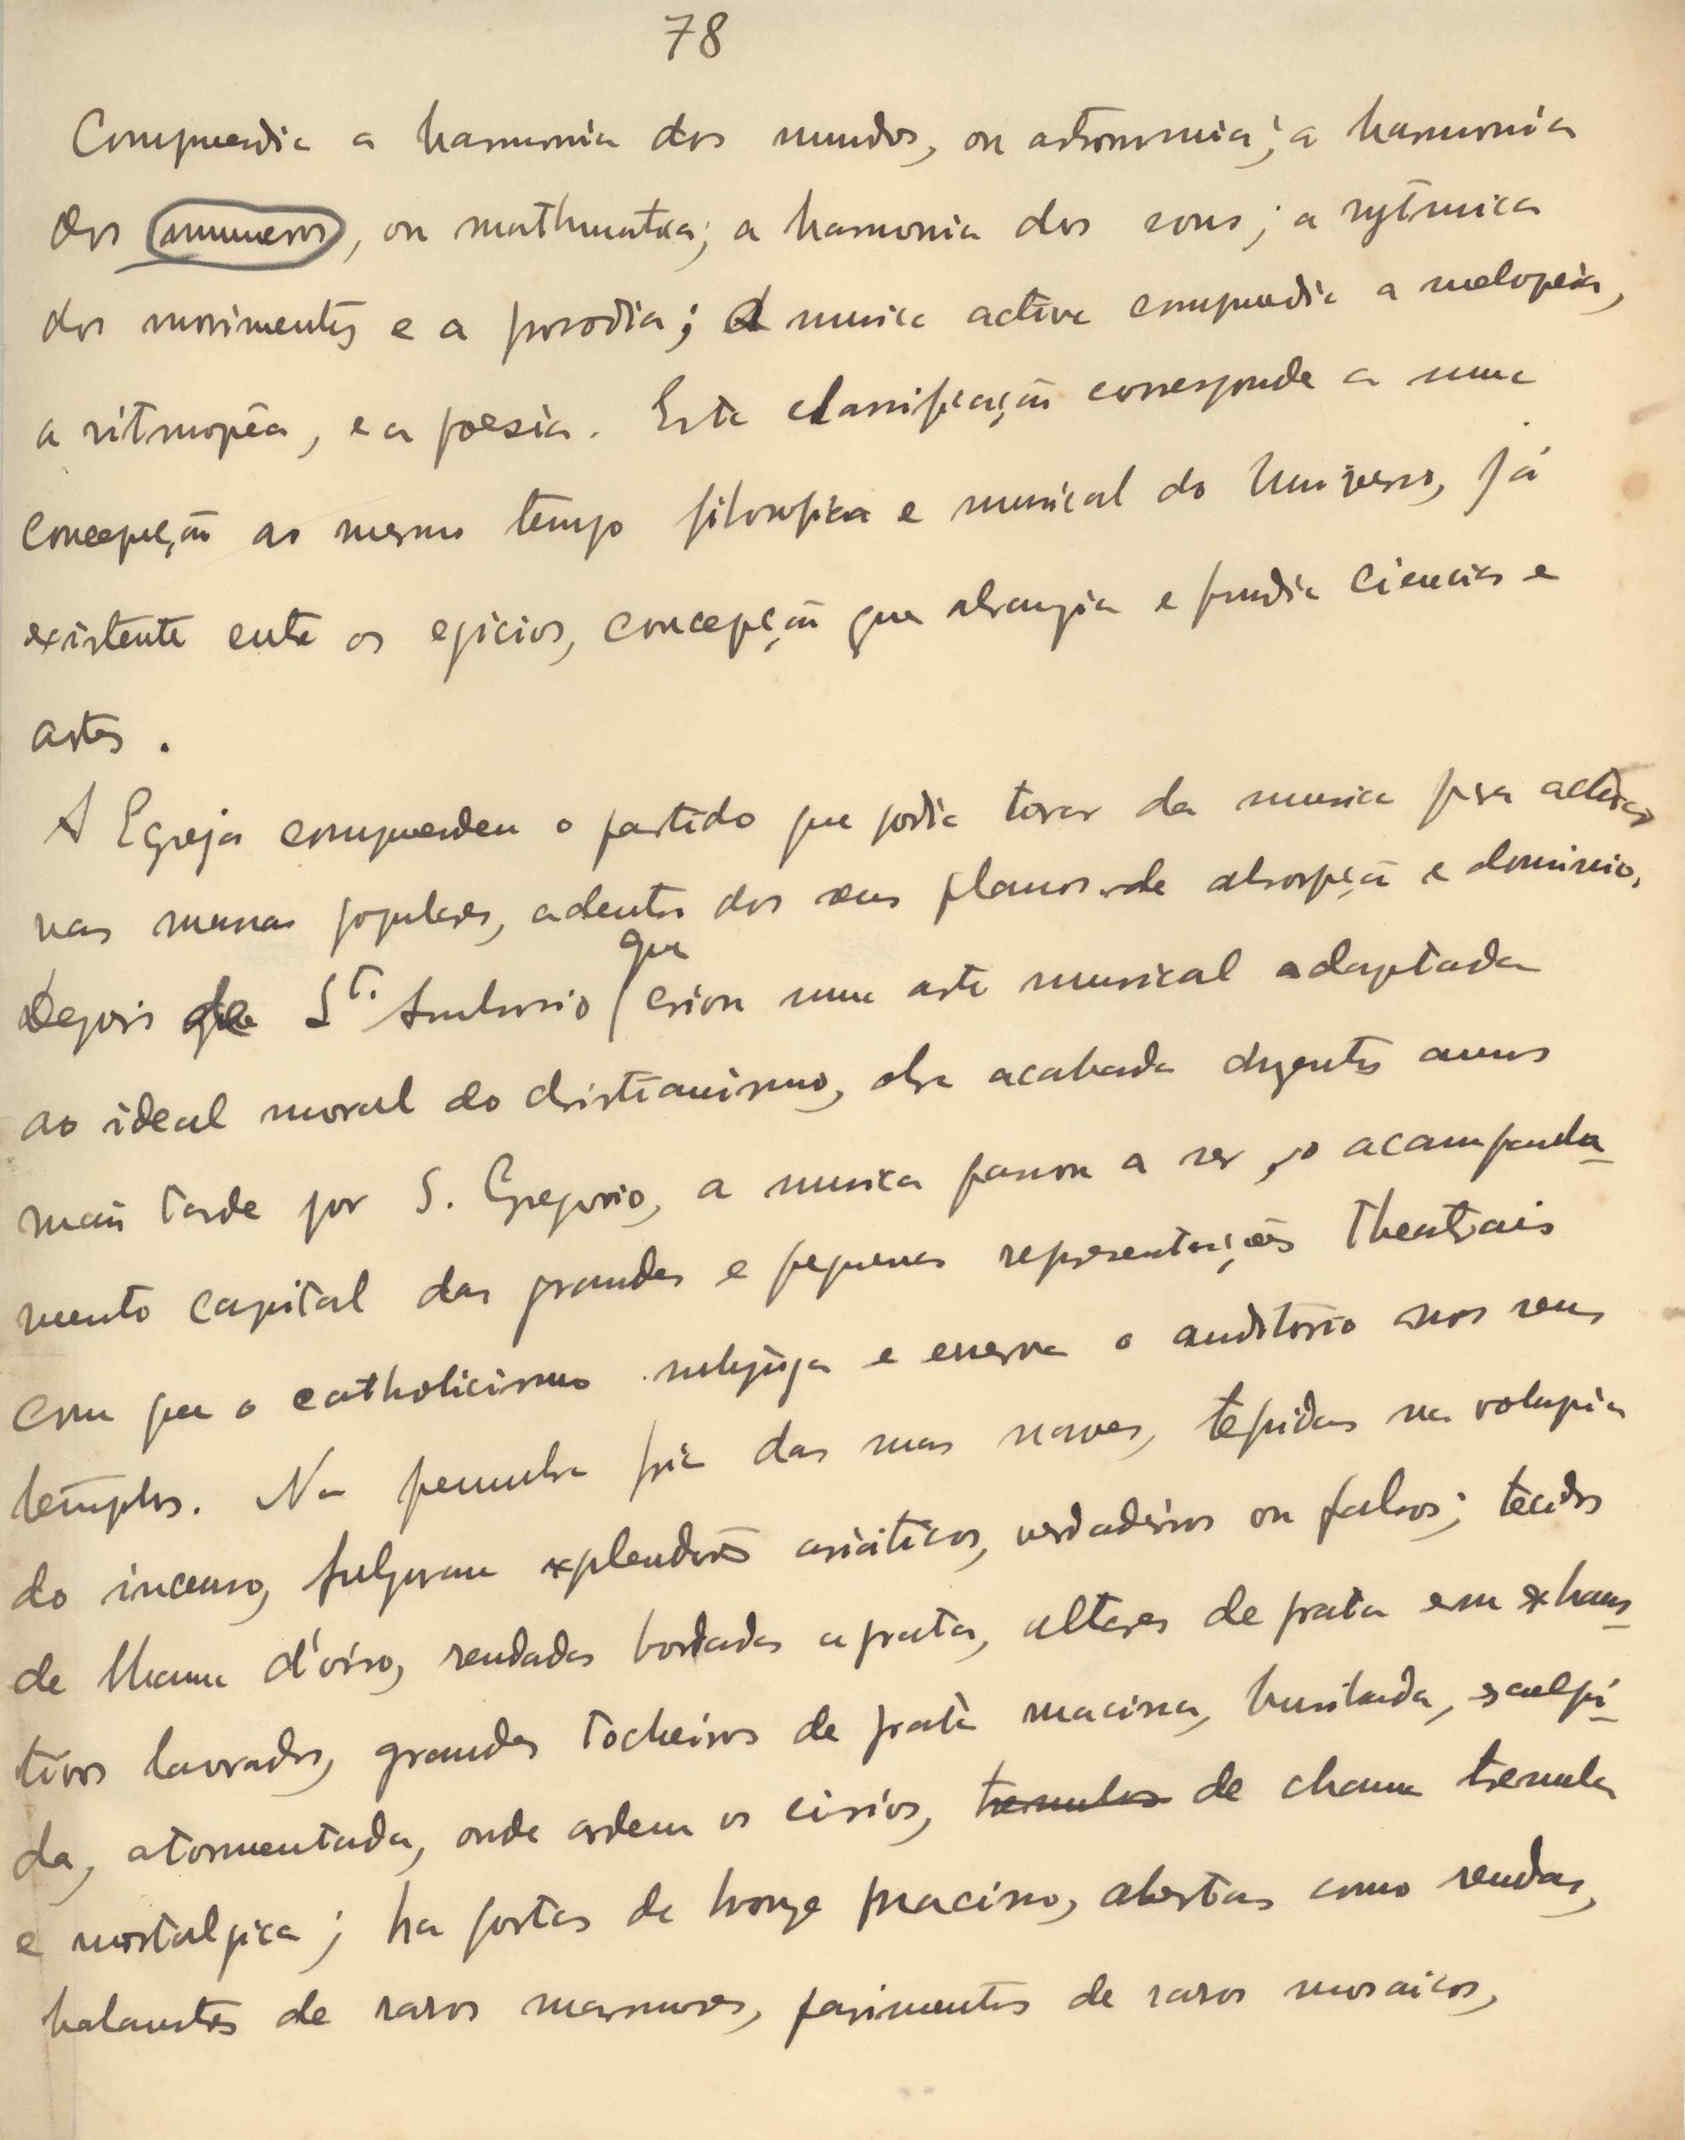 78
Comprendia a harmonia dos mundos, ou astronomia; a harmonia
dos numeros, ou mathematica; a harmonia dos sons; a rytmica
dos movimentos e a prosodia; A musica activa comprendia a melopeia,
a ritmopêa, e a poesia. Esta classificação corresponde a uma
concepção ao mesmo tempo filosofica e musical do Universo, já
existente entre os egicios, concepção que abrangia e fundia ciencias e
artes.
A Egreja comprendeu o partido que podia tirar da musica pra acção
nas massas populares, adentro dos seus planos de absorpção e dominio.
Depois de Sto. Ambrosio que criou uma arte musical adaptada
ao ideal moral do christianismo, obra acabada duzentos annos
mais tarde por S. Gregorio, a musica passou a ser o acampanha-
mento capital das grandes e pequenas representações theatrais
com que o catholicismo subjuga e enerva o auditorio nos seus
templos. Na penumbra fria das suas naves, tepidas na volupia
do incenso, fulguram explendores asiáticos, verdadeiros ou falsos; tecidos
de lhama d'oiro, rendadas bordadas a prata, altares de prata em exhaus-
tivos lavrados, grandes tocheiros de prata macissa, burilada, esculpi-
da, atormentada, onde ardem os cirios, tremulos de chama tremula
e nostalgica; ha portas de bronze macisso, abertas como rendas,
balaustres de raros marmores, pavimentos de raros mosaicos,